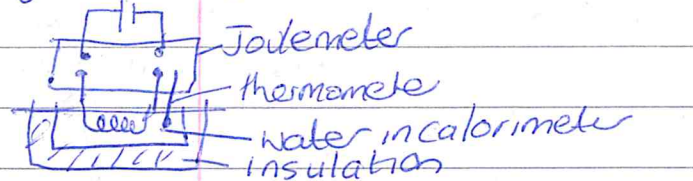 Joulemeter
thermomete
water in calorimeter
insulation